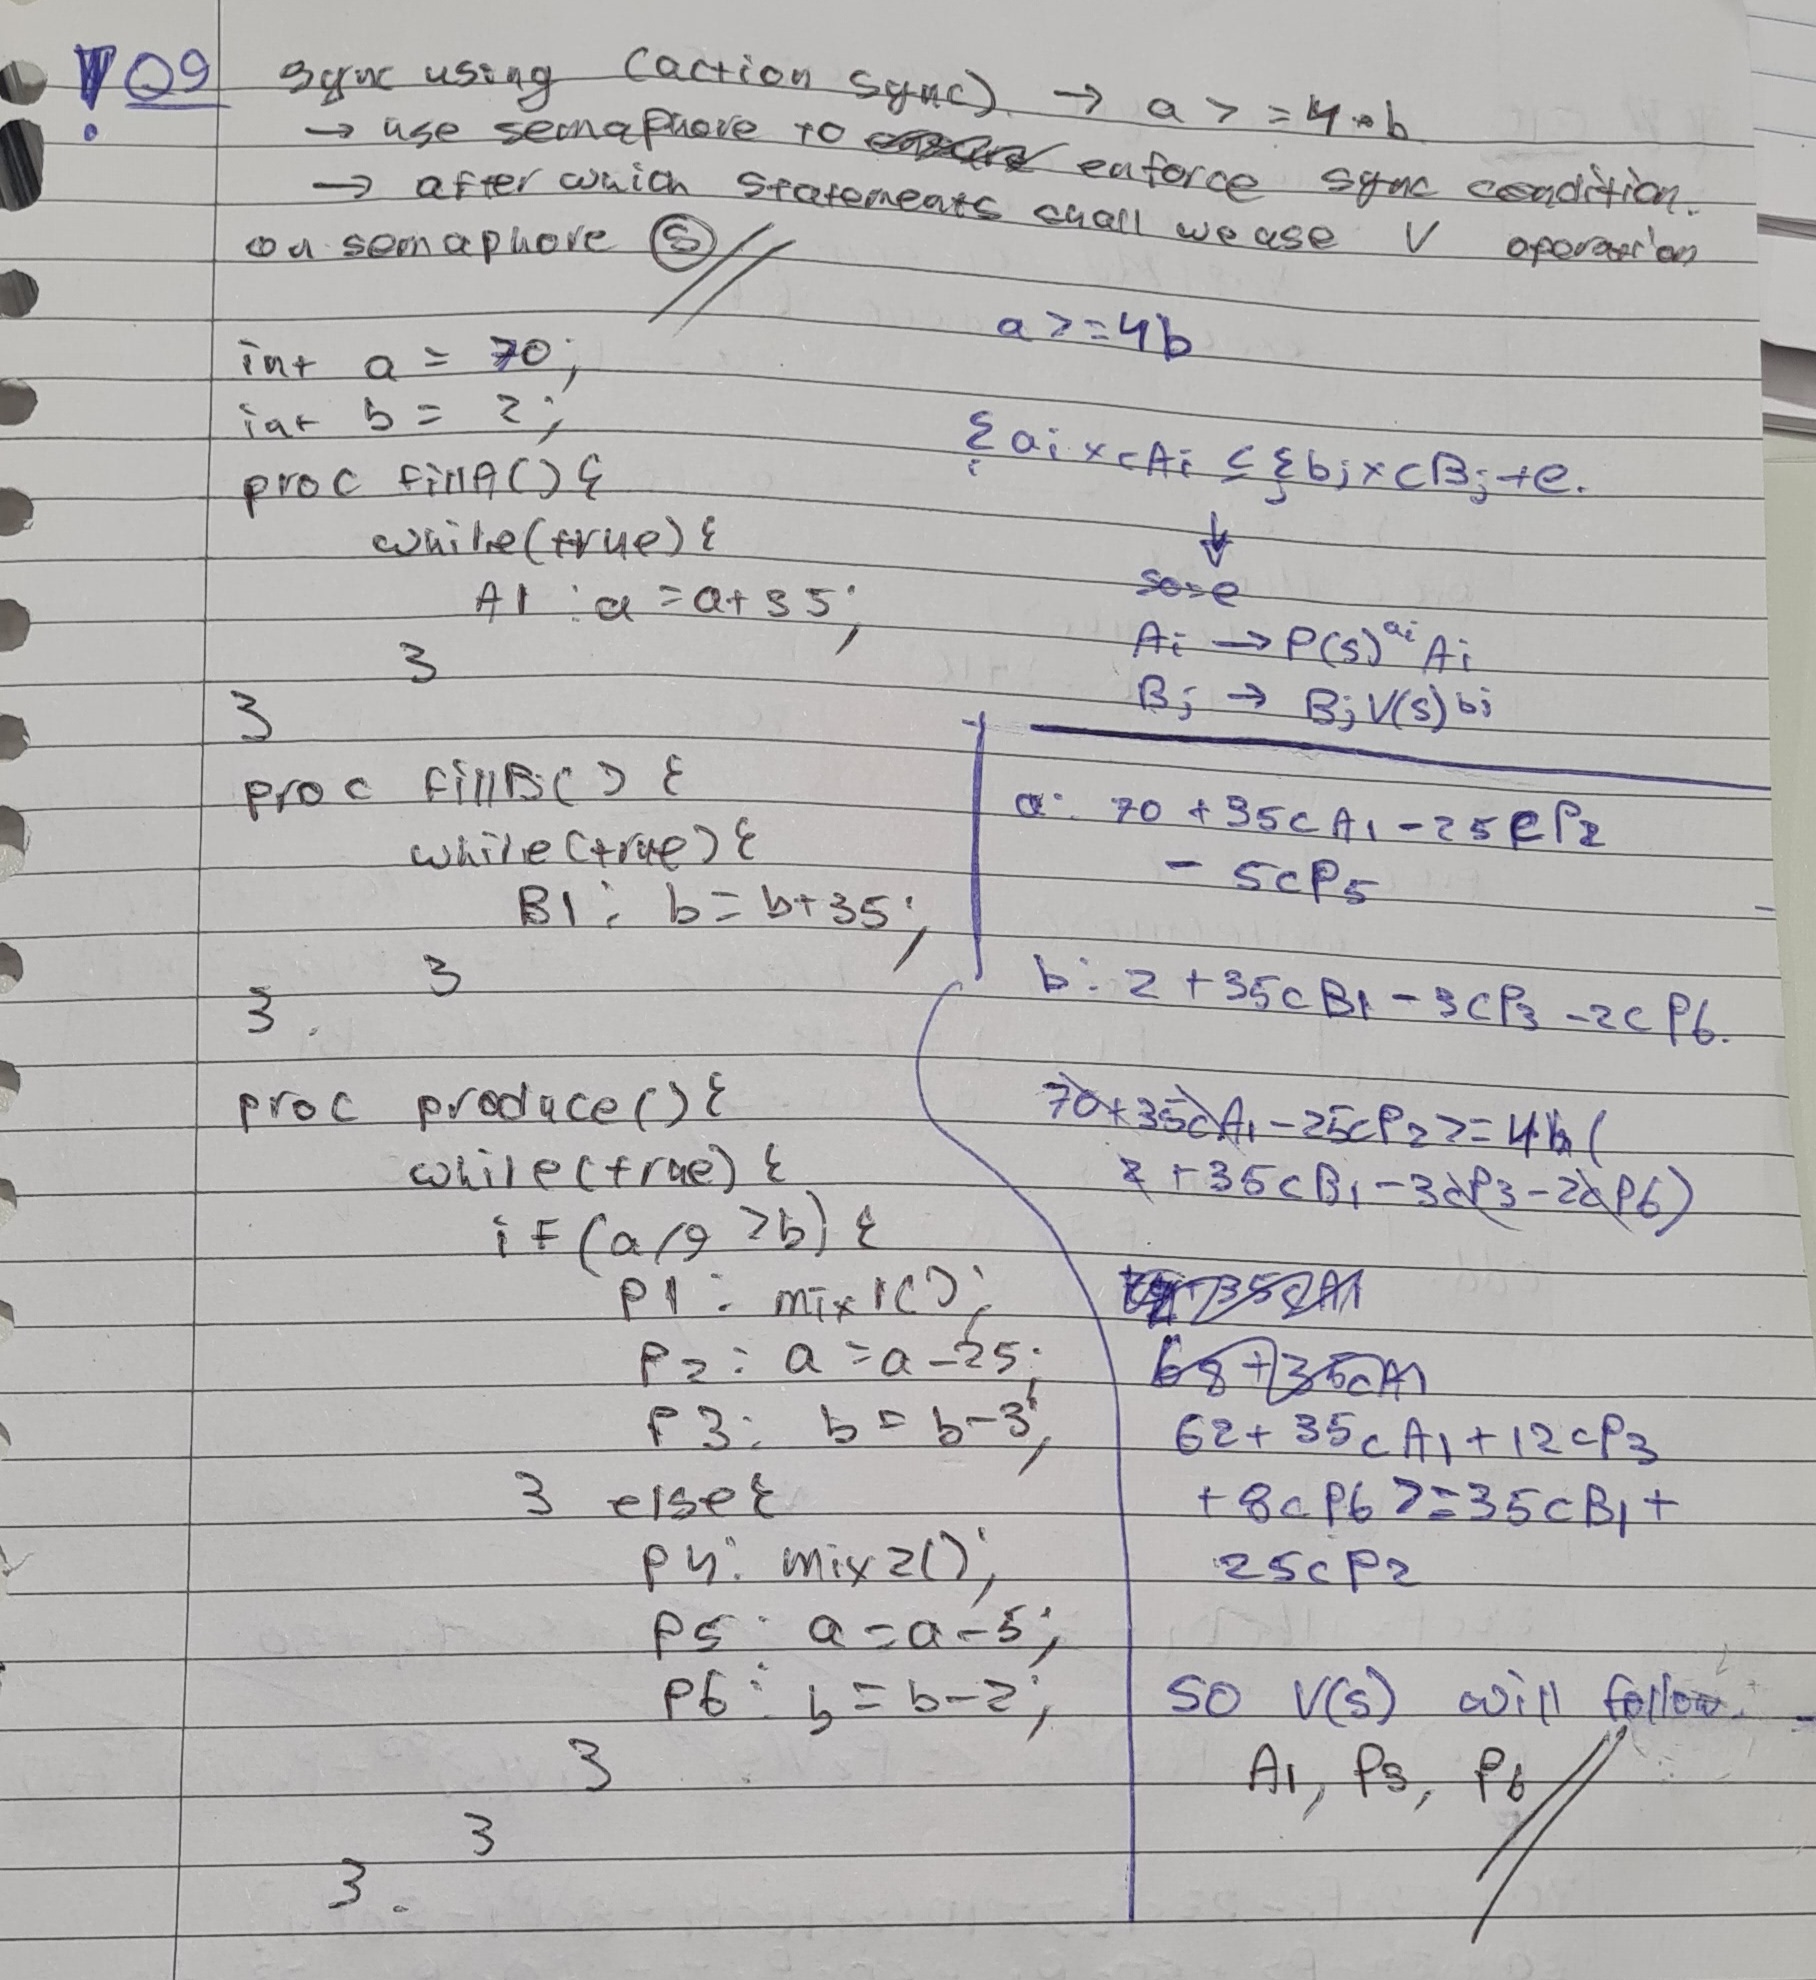 ! Q9 sync using (action sync) → a >= 4*b
→ use semaphore to enforce sync condition.
→ after which statements shall we use V operation
on semaphore (S)
a >= 4b
int a = 70;
int b = 2;
proc fillA() {
while(true) {
A1 : a = a + 35;
}
}
proc fillB() {
while(true) {
B1 : b = b + 35;
}
}.
proc produce() {
while(true) {
if (a/9 > b) {
P1 : mix1();
P2 : a = a - 25;
P3 : b = b - 3;
} else {
P4 : mix2();
P5 : a = a - 5;
P6 : b = b - 2;
}
}
}.
Σi ai x cAi ≤ Σj bj x cBj + e.
↓
so=e
Ai → P(s)^ai Ai
Bj → Bj V(s)^bj
a: 70 + 35cA1 - 25cP2
- 5cP5
b: 2 + 35cB1 - 3cP3 - 2cP6.
70+35cA1 - 25cP2 >= 4b(
2 + 35cB1 - 3cP3 - 2cP6)
68 + 35cA1
62 + 35cA1 + 12cP3
+ 8cP6 >= 35cB1 +
25cP2
so V(s) will follow.
A1, P3, P6